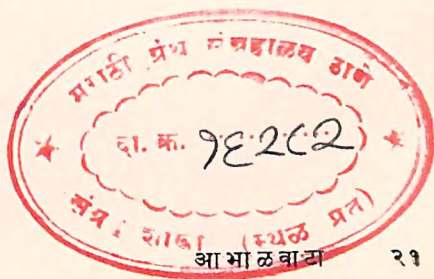 मराठी ग्रंथ संग्रहालय ठाणे
दा. क्र. १६२८२
शाखा (स्थळ प्रत)
आभाळवाटा २१